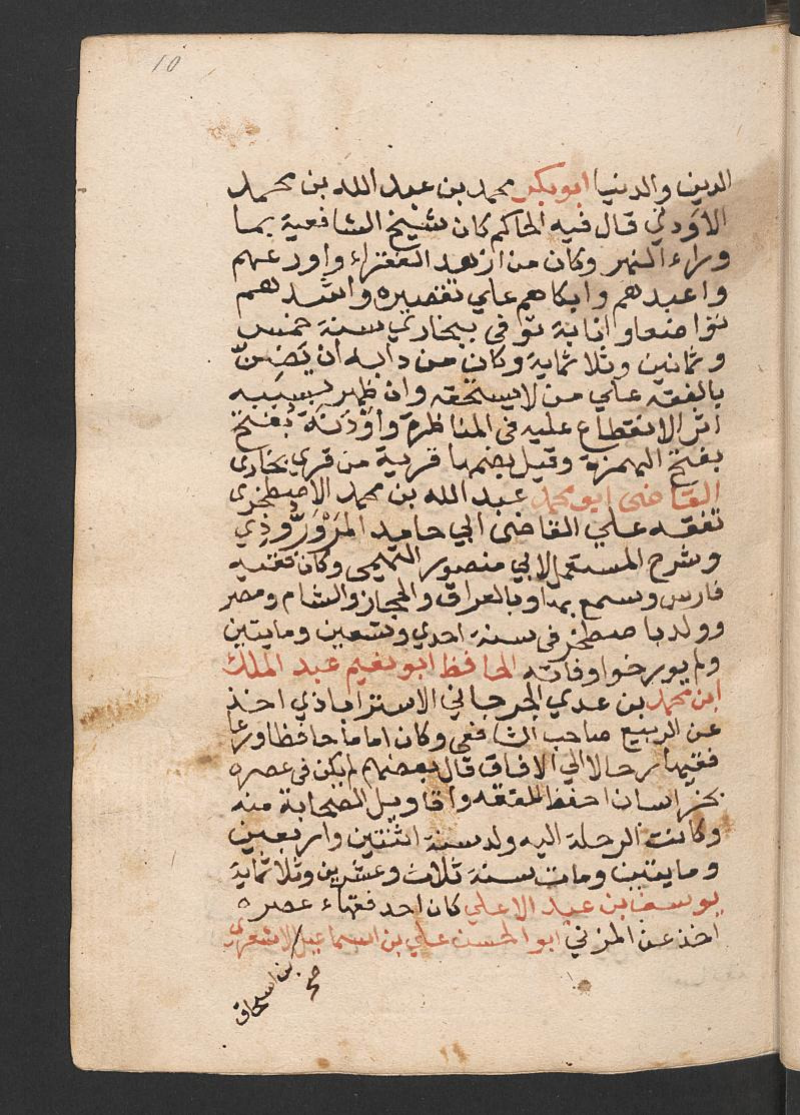 10
الدين والدنيا ابو بكر محمد بن عبد الله بن محمد
الاَودني قال فيه الحاكم كان شيخ الشافعية بما
وراء النهر وكان من ازهد الفقراء واورعهم
واعبدهم وابكاهم علي تقصيره واشدهم
تواضعا وانابة توفي ببخاري سنة خمس
وثمانين وثلاثماية وكان من دابه ان يَضِنّ
بالفقه علي من لا يستحقه وان ظهر بسببه
اثر الانقطاع عليه في المناظرة واَوْدَنَة بفتح
بفتح الهمزة وقيل بضمها قرية من قري بخاري
القاضي ابو محمد عبد الله بن محمد الاصطخري
تفقه علي القاضي ابي حامد المَرْوَرُّوذِي
وشرح المستعمل لابي منصور التميمي وكان فقيه
فارس وسمع بها وبالعراق والحجاز والشام ومصر
وولد باصطخر في سنة احدي وتسعين ومايتين
ولم يورخوا وفاته الحافظ ابو نعيم عبد الملك
ابن محمد بن عدي الجرجاني الاستراباذي اخذ
عن الربيع صاحب الشافعي وكان اماما حافظا ورعا
فقيها رحالا الي الافاق قال بعضهم لم يكن في عصره
بخراسان احفظ للفقه واقاويل الصحابة منه
وكانت الرحلة اليه ولد سنة اثنتين واربعين
ومايتين ومات سنة ثلاث وعشرين وثلاثماية
يوسف بن عبد الاعلي كان احد فقهاء عصره
اخذ عن المزني ابو الحسن علي بن اسماعيل الاشعري
بن اسحاق
صح